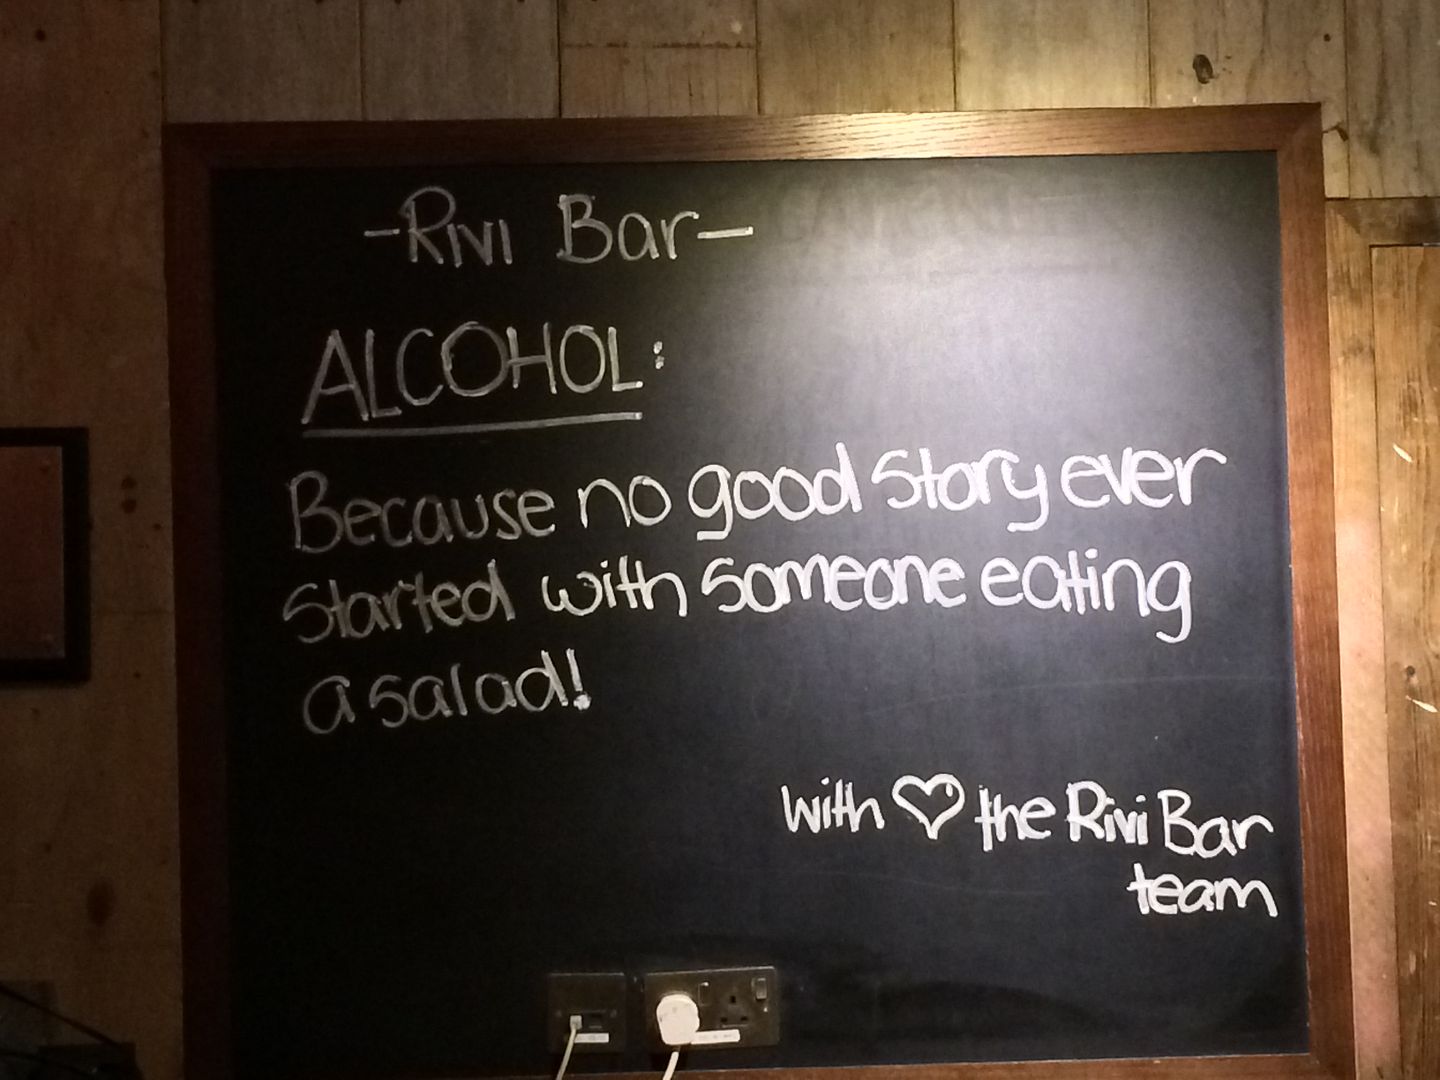 -Rivi Bar-
ALCOHOL:
Because no good story ever
started with someone eating
a salad!
with ♡ the Rivi Bar
team